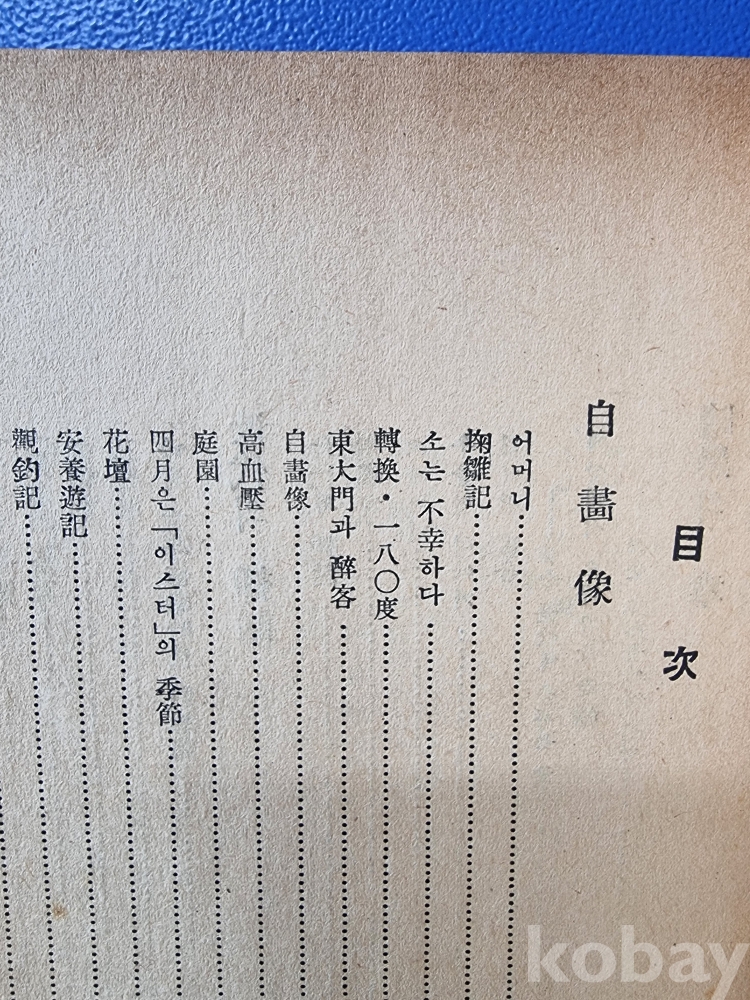 目次
自畫像
어머니
掬雛記
소는 不幸하다
轉換・一八〇度
東大門과 醉客
自畫像
高血壓
庭園
四月은「이스터」의 季節
花壇
安養遊記
觀釣記
kobay